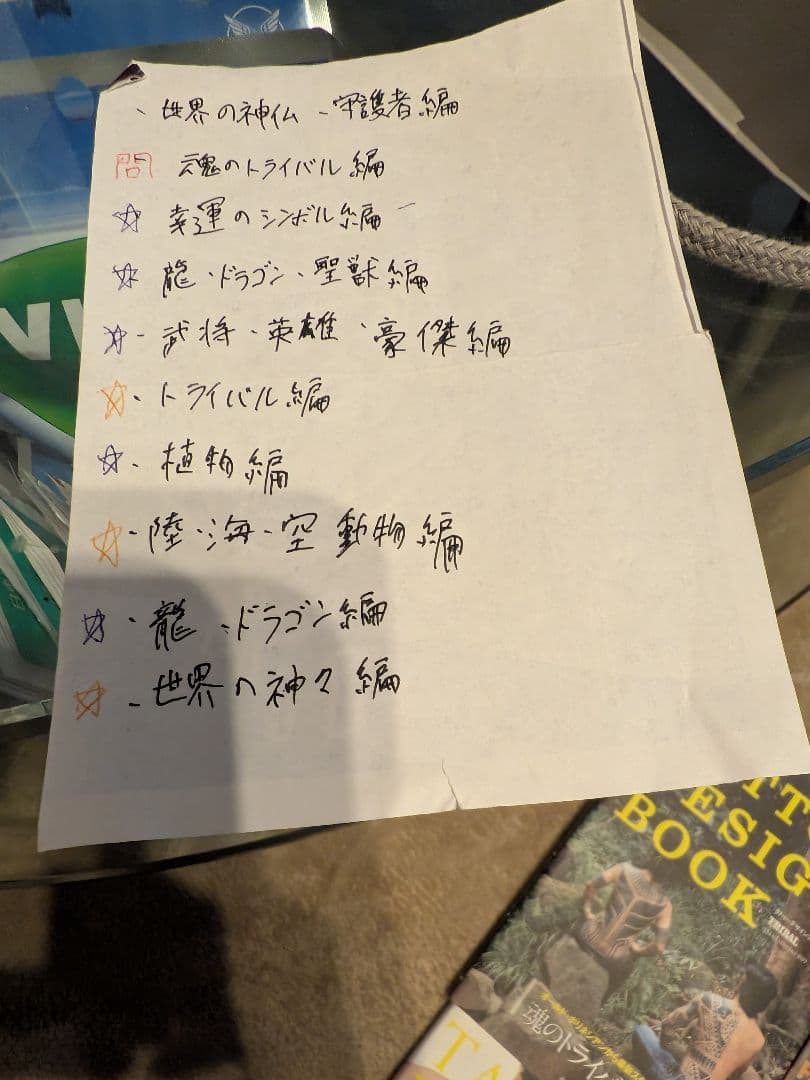 、世界の神仏、守護者編
問 魂のトライバル編
☆ 幸運のシンボル編
☆ 龍、ドラゴン、聖獣編
☆、武将、英雄、豪傑編
☆、トライバル編
☆、植物編
☆、陸、海、空 動物編
☆、龍、ドラゴン編
☆、世界の神々編
BOOK
TRIBAL
魂のトライ
TA